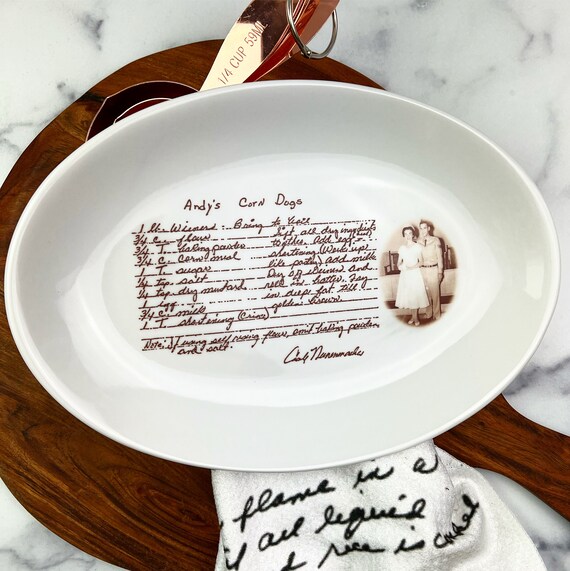 1/4 CUP 59ML
Andy's Corn Dogs
1 lb. Wieners .. Bring to boil
3/4 c. flour Sift all dry ingredients
1 T. baking powder together. Add egg &
3/4 c. corn meal shortening (Work up
1 T. sugar like pastry) add milk
1/2 tsp salt Dry off wieners and
1/2 tsp dry mustard roll in batter. Fry
1 egg in deep fat till
3/4 c milk golden brown.
1 T. shortening (Crisco)
Note: if using self rising flour, omit baking powder
and salt.
flame in a
all liquid
rice is